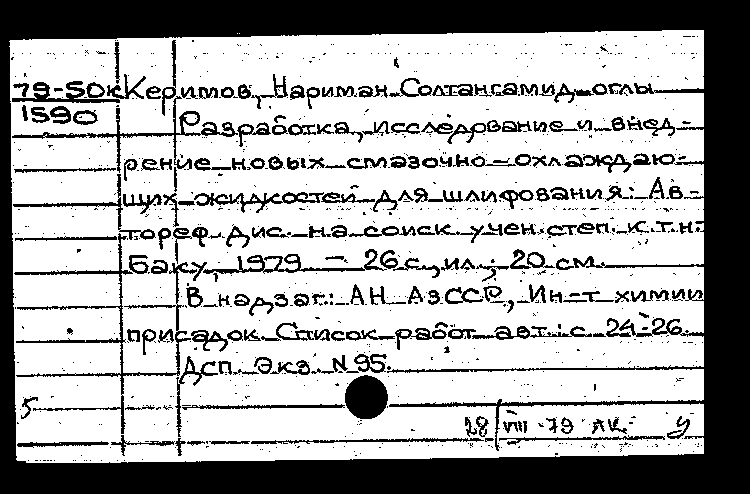 79-5ОК Керимов, Нариман Солтансамид оглы
1590 Разработка, исследование и внед-
рение новых смазочно-охлаждаю-
щих жидкостей для шлифования: Ав-
тореф. дис. на соиск. учен. степ. к.т.н.
Баку, 1979. - 26 с., ил.; 20 см.
В надзаг.: АН АзССР, Ин-т химии
присадок. Список работ авт.: с. 24-26.
Дсп. Экз. N 95.
5
28 VIII-79 АК. У